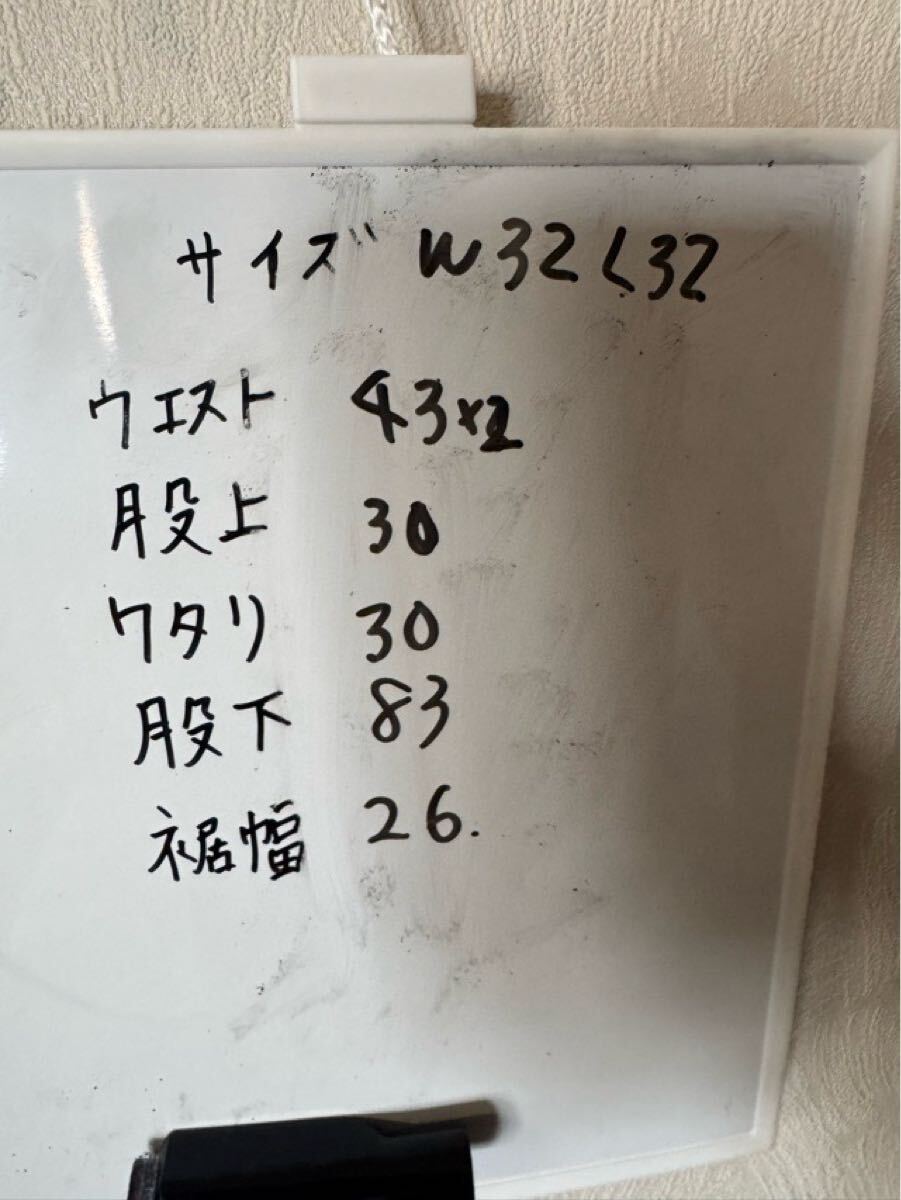 サイズ W32L32
ウエスト 43×2
股上 30
ワタリ 30
股下 83
裾幅 26.